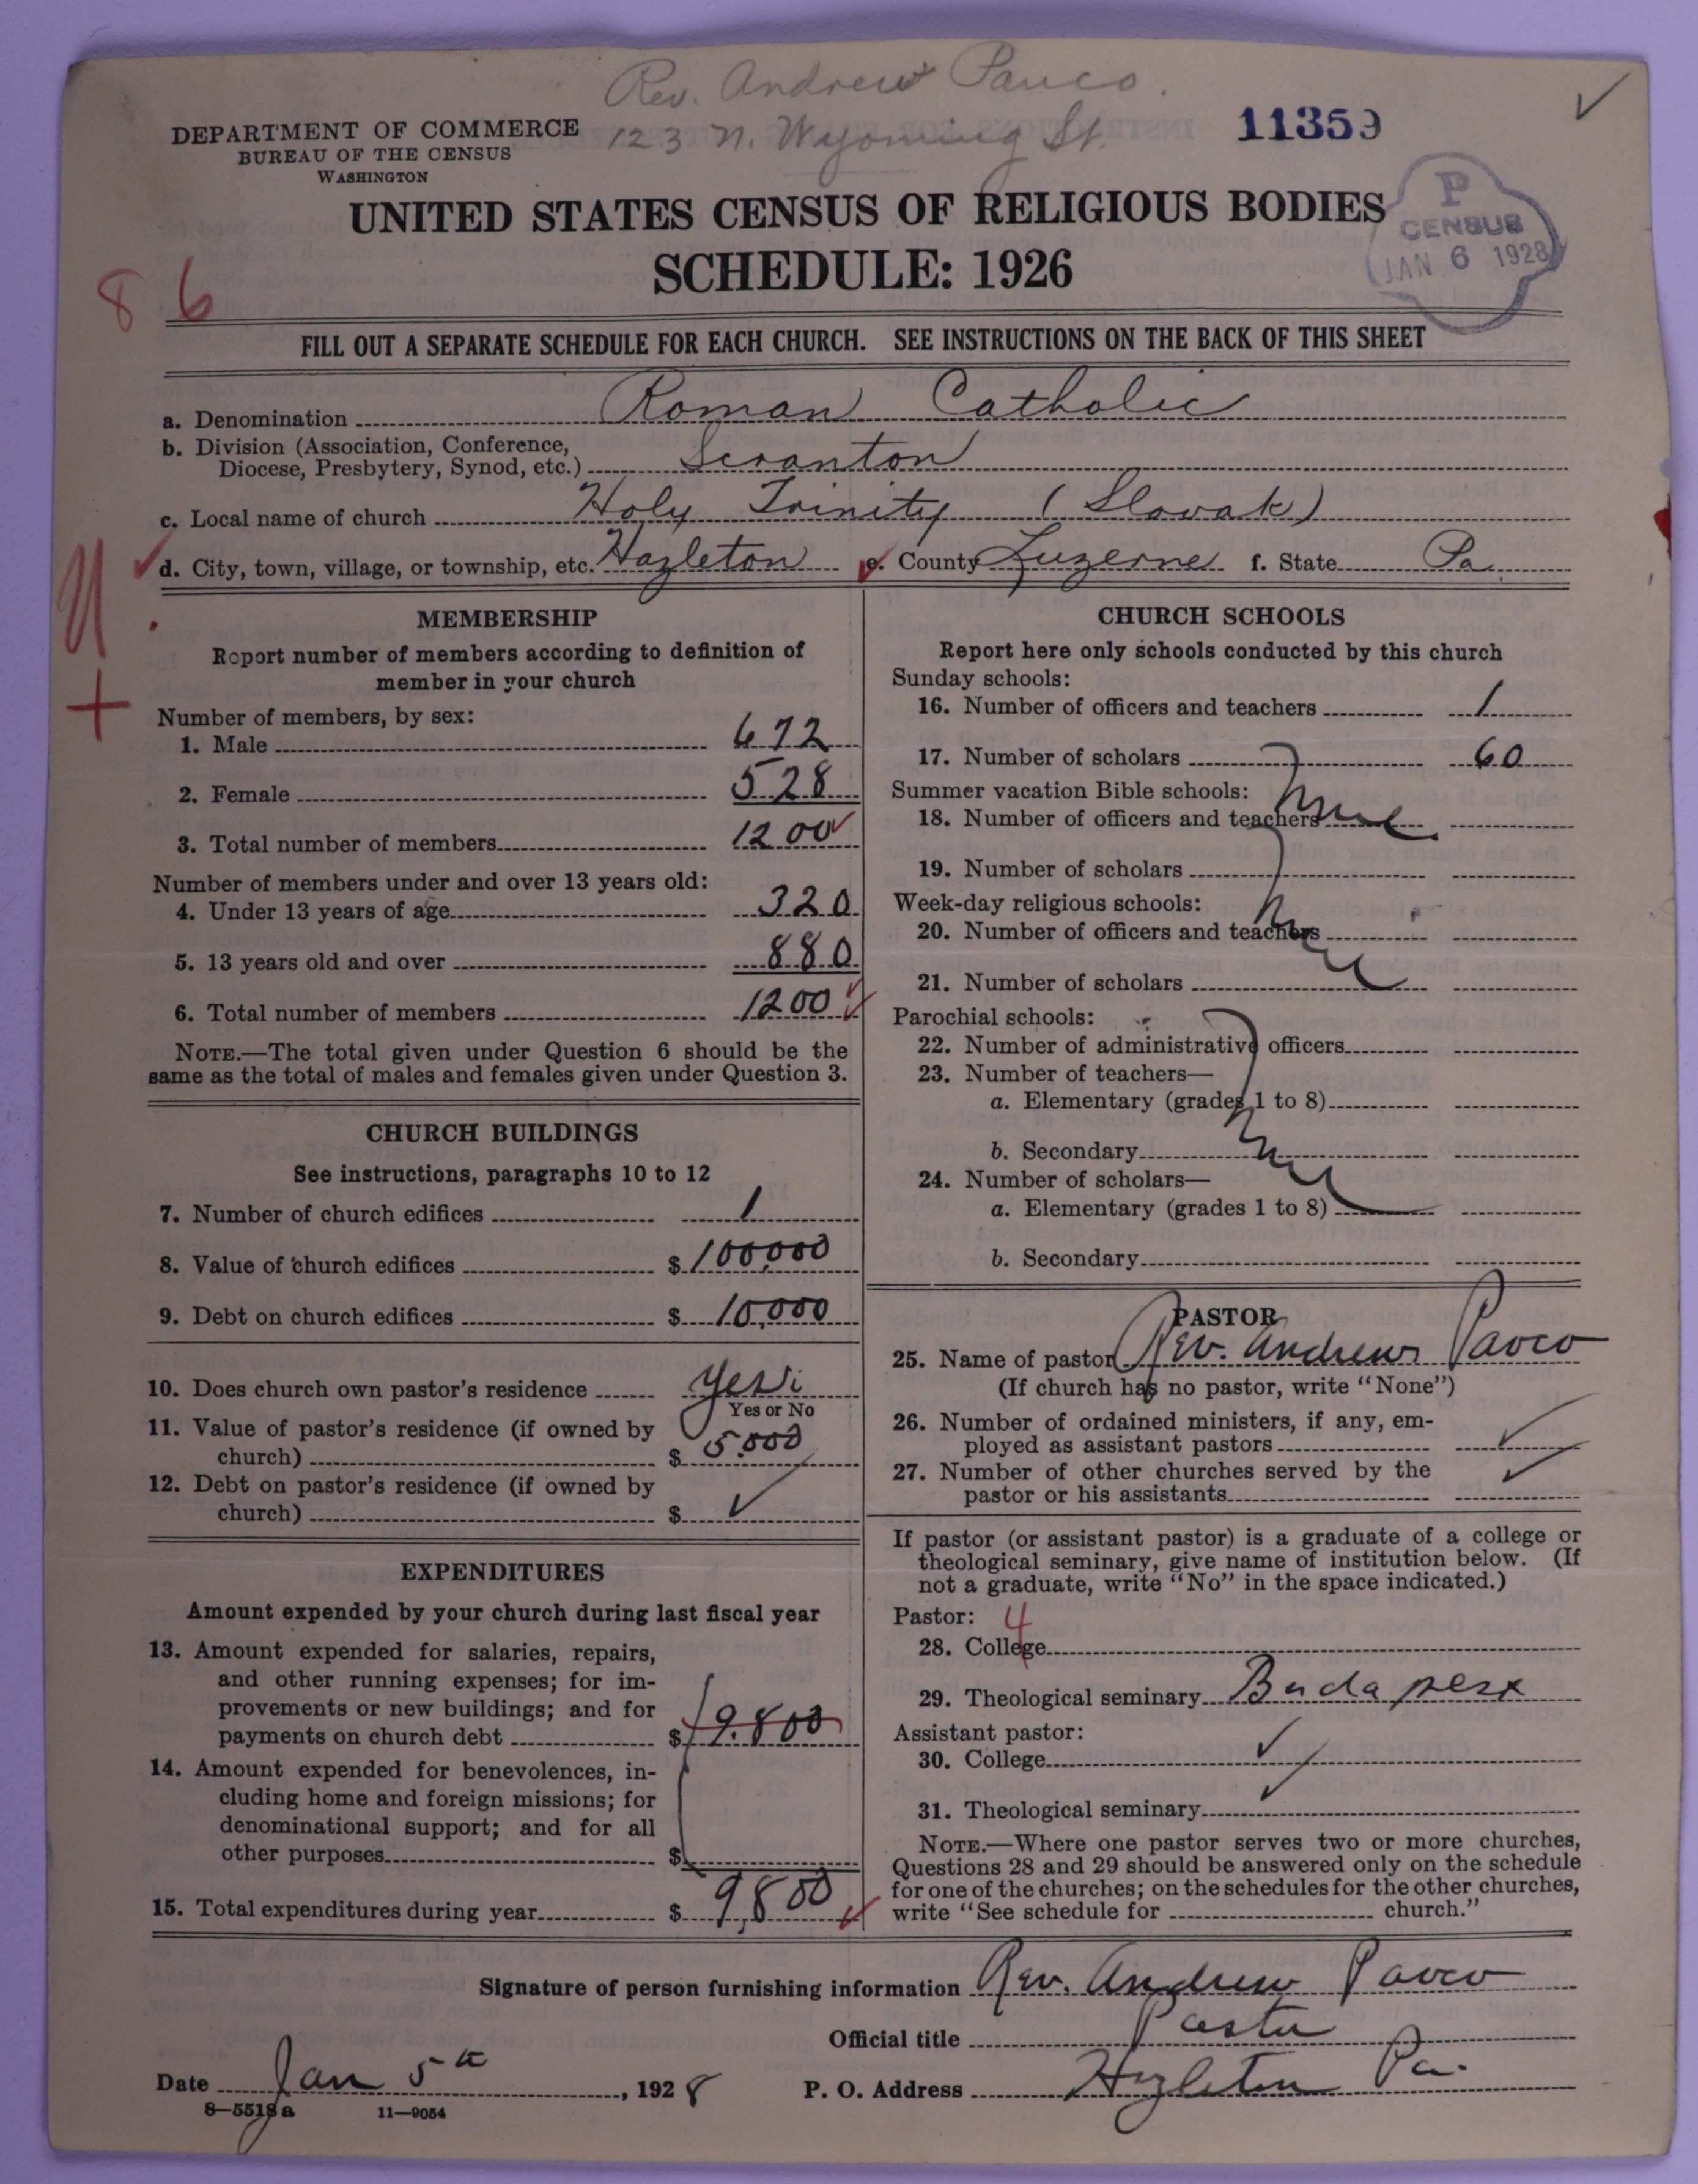 Rev. Andrew Pauco.
123 N. Wyoming St.
11359
DEPARTMENT OF COMMERCE
BUREAU OF THE CENSUS
WASHINGTON
UNITED STATES CENSUS OF RELIGIOUS BODIES
SCHEDULE: 1926
P
CENSUS
JAN 6 1928
86
FILL OUT A SEPARATE SCHEDULE FOR EACH CHURCH. SEE INSTRUCTIONS ON THE BACK OF THIS SHEET
a. Denomination Roman Catholic
b. Division (Association, Conference,
Diocese, Presbytery, Synod, etc.) Scranton
c. Local name of church Holy Trinity (Slovak)
d. City, town, village, or township, etc. Hazleton e. County Luzerne f. State Pa.
MEMBERSHIP
Report number of members according to definition of
member in your church
Number of members, by sex:
1. Male 672
2. Female 528
3. Total number of members 1200
Number of members under and over 13 years old:
4. Under 13 years of age 320
5. 13 years old and over 880
6. Total number of members 1200
NOTE.—The total given under Question 6 should be the
same as the total of males and females given under Question 3.
CHURCH BUILDINGS
See instructions, paragraphs 10 to 12
7. Number of church edifices 1
8. Value of church edifices $ 100,000
9. Debt on church edifices $ 10,000
10. Does church own pastor's residence Yes
Yes or No
11. Value of pastor's residence (if owned by
church) $ 5.000
12. Debt on pastor's residence (if owned by
church) $
EXPENDITURES
Amount expended by your church during last fiscal year
13. Amount expended for salaries, repairs,
and other running expenses; for im-
provements or new buildings; and for
payments on church debt $ 9.800
14. Amount expended for benevolences, in-
cluding home and foreign missions; for
denominational support; and for all
other purposes $
15. Total expenditures during year $ 9,800
CHURCH SCHOOLS
Report here only schools conducted by this church
Sunday schools:
16. Number of officers and teachers 1
17. Number of scholars 60
Summer vacation Bible schools:
18. Number of officers and teachers
19. Number of scholars
Week-day religious schools:
20. Number of officers and teachers
21. Number of scholars
Parochial schools:
22. Number of administrative officers
23. Number of teachers—
a. Elementary (grades 1 to 8)
b. Secondary
24. Number of scholars—
a. Elementary (grades 1 to 8)
b. Secondary
PASTOR
25. Name of pastor Rev. Andrew Pauco
(If church has no pastor, write "None")
26. Number of ordained ministers, if any, em-
ployed as assistant pastors
27. Number of other churches served by the
pastor or his assistants
If pastor (or assistant pastor) is a graduate of a college or
theological seminary, give name of institution below. (If
not a graduate, write "No" in the space indicated.)
Pastor: 4
28. College
29. Theological seminary Budapest
Assistant pastor:
30. College
31. Theological seminary
NOTE.—Where one pastor serves two or more churches,
Questions 28 and 29 should be answered only on the schedule
for one of the churches; on the schedules for the other churches,
write "See schedule for church."
Signature of person furnishing information Rev. Andrew Pauco
Official title Pastor
Date Jan 5th, 1928 P. O. Address Hazleton Pa.
8—5518a 11—9054